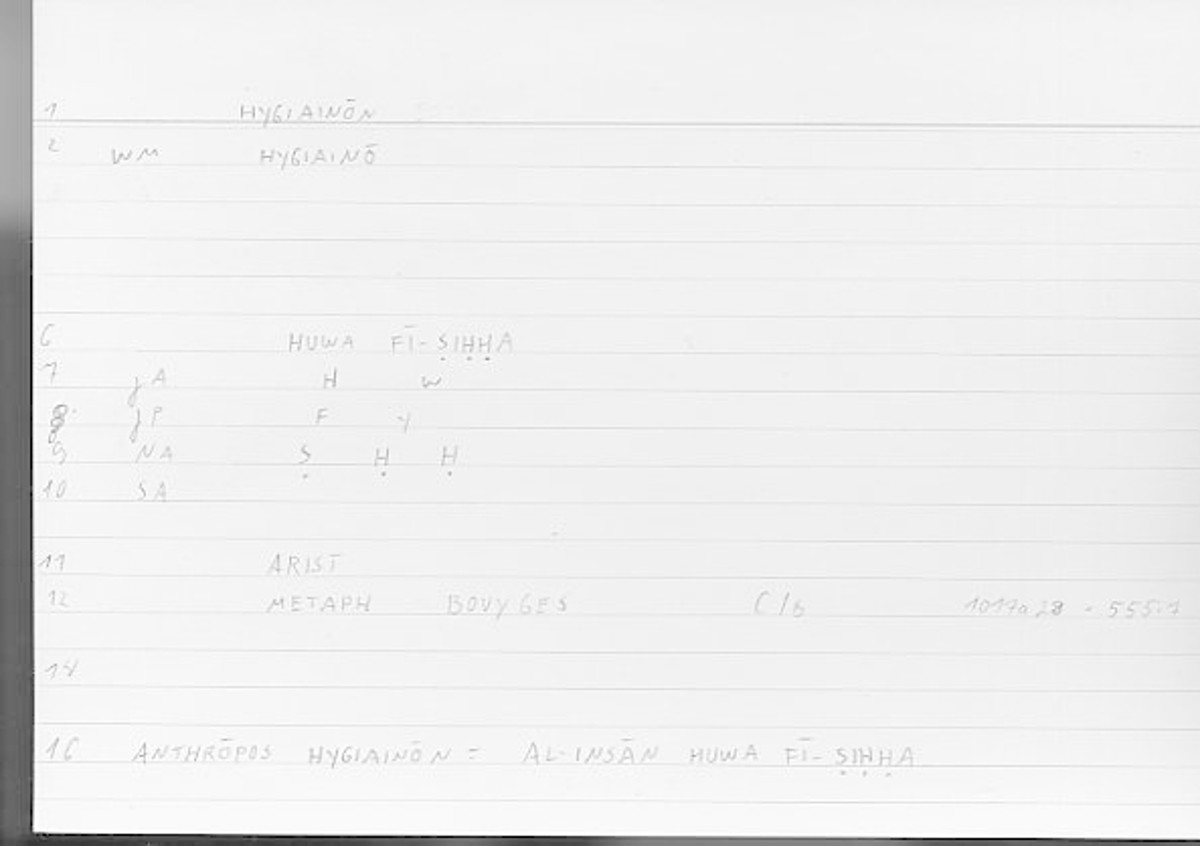 1 HYGIAINŌN
2 WM HYGIAINŌ
6 HUWA FĪ-ṢIḤḤA
7 jA H W
8 jP F Y
9 NA Ṣ Ḥ Ḥ
10 SA
11 ARIST
12 METAPH BOUYGES C/b 1017a28 - 555.1
14
16 ANTHRŌPOS HYGIAINŌN = AL-INSĀN HUWA FĪ-ṢIḤḤA